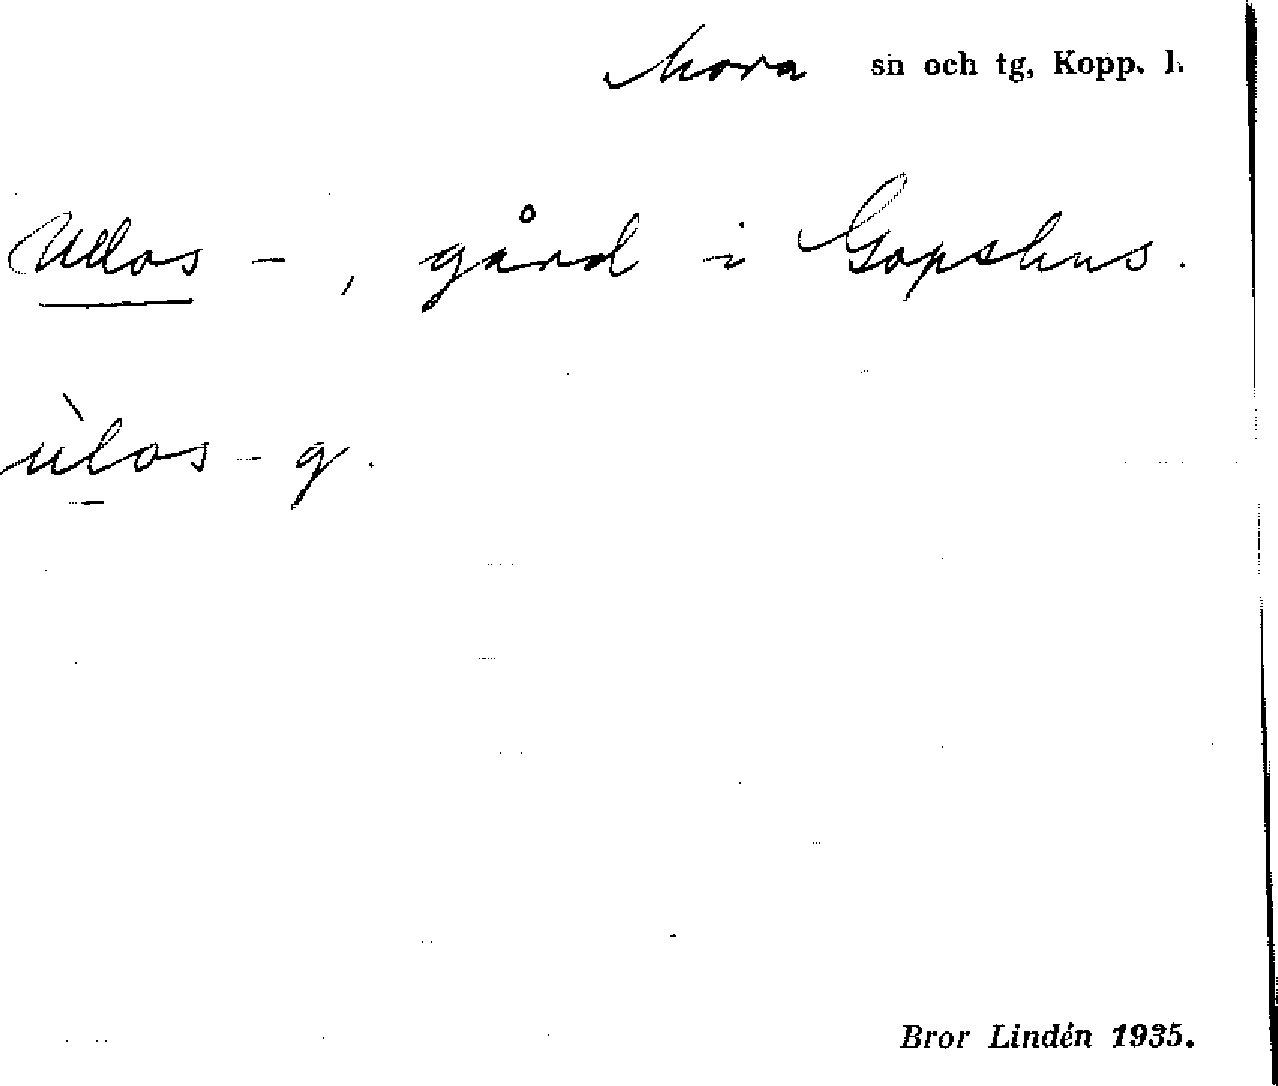 Mora sn och tg, Kopp. l.
Ullos -, gård i Gopshus.
ùlos - g.
Bror Lindén 1935.